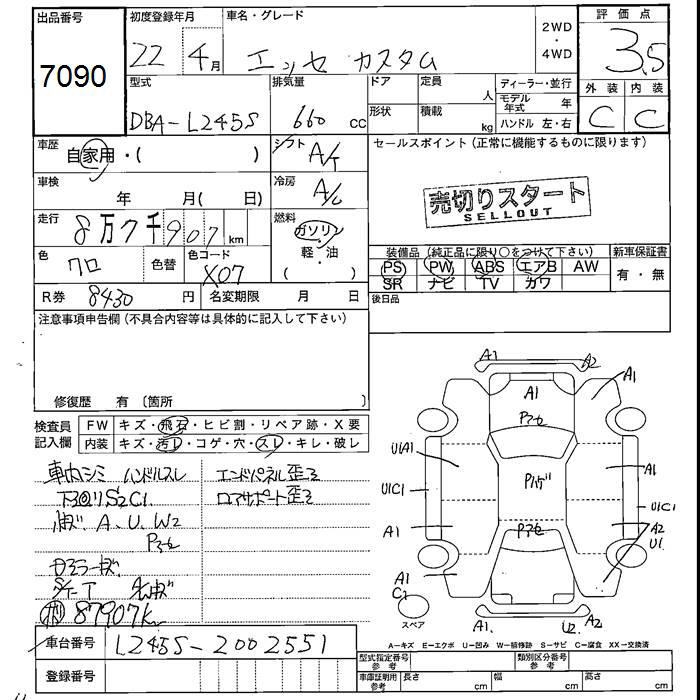 出品番号
7090
初度登録年月
22 4月
車名・グレード
エッセ カスタム
2WD
・
4WD
評価点
3.5
外装 内装
C C
型式
DBA-L245S
排気量
660 cc
ドア
形状
定員
人
積載
kg
ディーラー・並行
モデル年式 年
ハンドル 左・右
車歴
自家用・( )
シフト
A/T
セールスポイント (正常に機能するものに限ります)
売切りスタート
SELLOUT
車検
年 月( 日)
冷房
A/C
走行
8万7千907km
燃料
ガソリン
軽・油
( )
色
クロ
色替
色コード
X07
装備品 (純正品に限り○をつけて下さい)
PS PW ABS エアB AW
SR ナビ TV カワ
新車保証書
有・無
R券 8430 円
名変期限 月 日
後日品
注意事項申告欄 (不具合内容等は具体的に記入して下さい)
修復歴 有 〔箇所 〕
検査員記入欄
FW キズ・飛石・ヒビ割・リペア跡・X要
内装 キズ・汚レ・コゲ・穴・スレ・キレ・破レ
車内シミ ハンドルスレ
エンドパネル歪み
下回りS2C1
ロアサポート歪み
A、U、W2
87907km
車台番号 L245S-2002551
登録番号
A1 A2
A1
A1
U1A1
A1
U1C1
U1C1
A1
A2
U1
A1
C1
スペア
A1 U2 A2
A=キズ E=エクボ U=凹み W=補修跡 S=サビ C=腐食 XX=交換済
型式指定番号 参考
類別区分番号 参考
車庫証明用 参考
長さ cm
幅 cm
高さ cm